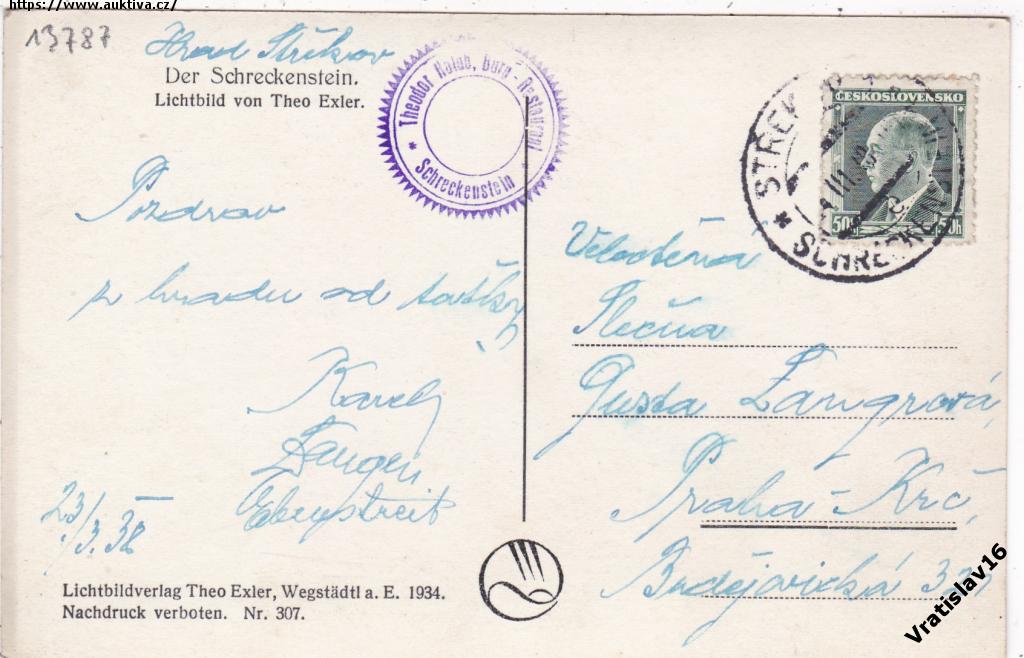 https://www.auktiva.cz/
13787
Hrad Střekov
Der Schreckenstein.
Lichtbild von Theo Exler.
Theodor Burg-Restaurant
* Schreckenstein *
ČESKOSLOVENSKO
50h 50h
* STŘEKOV
SCHRECKENSTEIN
Pozdrav
z hradu od
Karel
Langer
23/3.38
Slečna
Gusta Langrová,
Praha-Krč,
Budějovická
Lichtbildverlag Theo Exler, Wegstädtl a. E. 1934.
Nachdruck verboten. Nr. 307.
Vratislav16